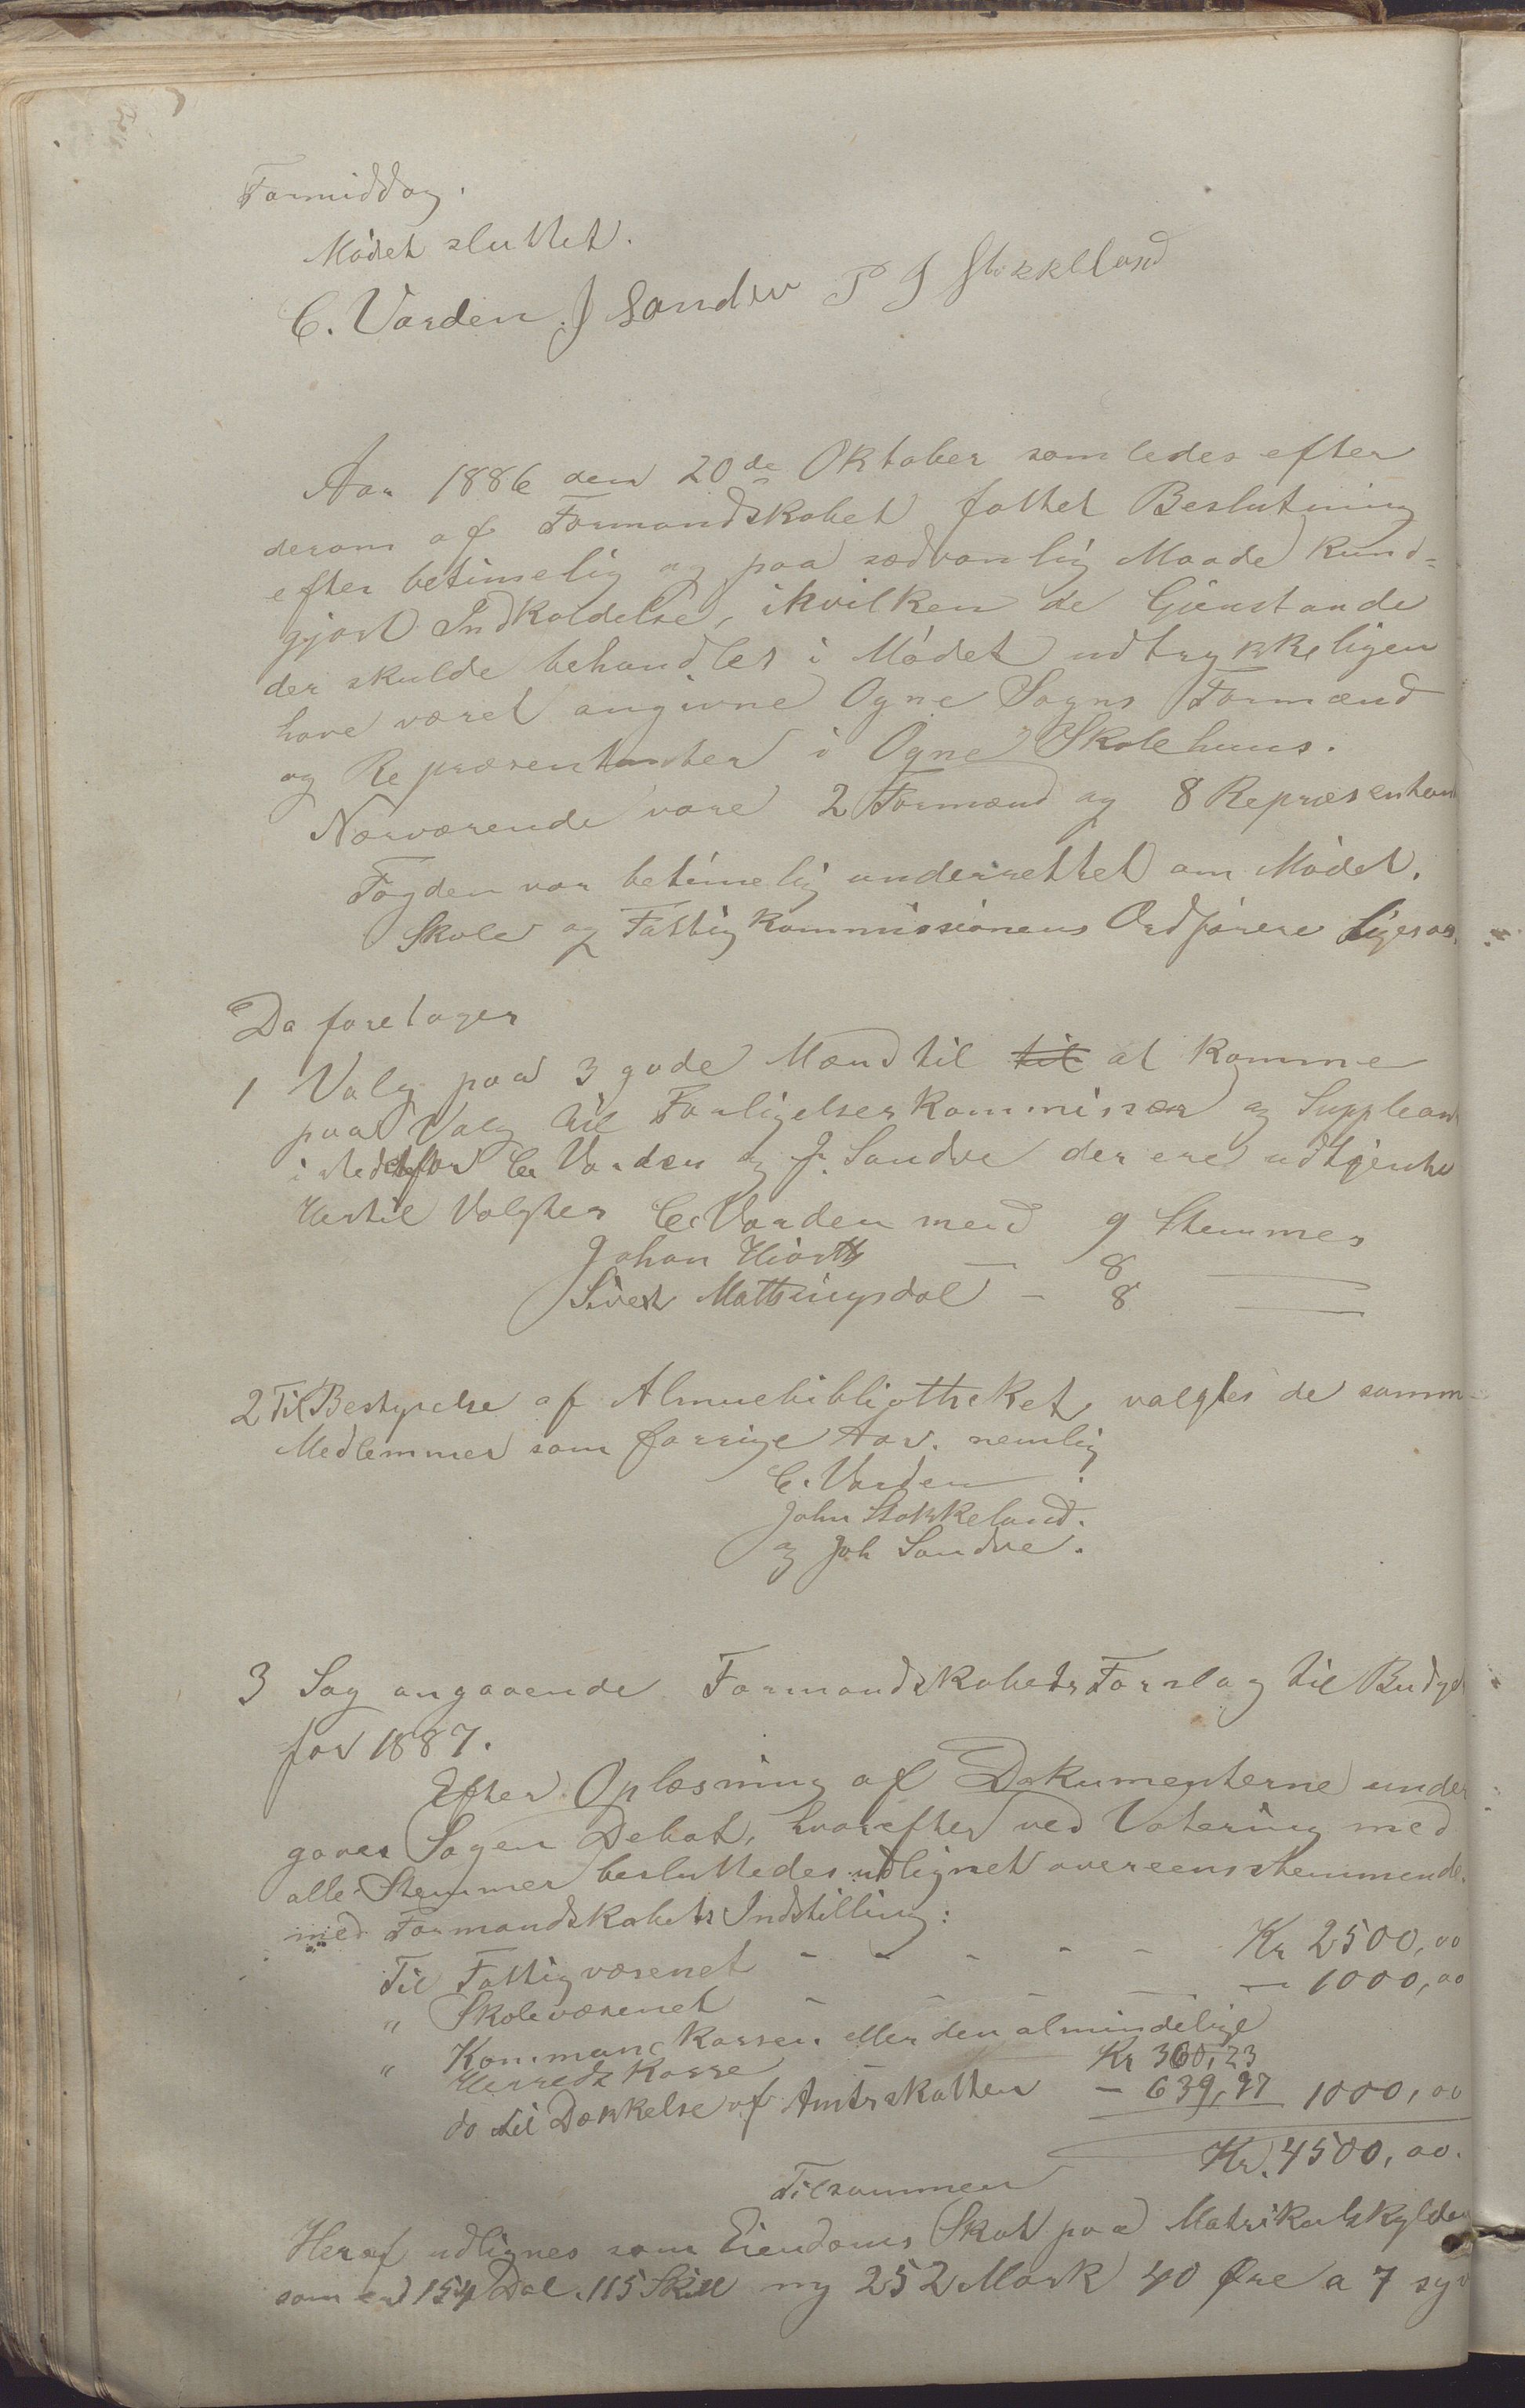 Formiddag.
Mødet sluttet.
C. Varden J Sandve P J Stokkeland
Aar 1886 den 20de Oktober samledes efter
derom af Formandskabet fattet Beslutning
efter betimelig og paa sædvanlig Maade kund=
gjort Indkaldelse, ihvilken de Gjenstande
der skulde behandles i Mødet udtrykkeligen
have været angivne Ogne Sogns Formænd
og Repræsentanter i Ogne Skolehuus.
Nærværende vare 2 Formænd og 8 Repræsentan
Fogden var betimelig underrettet om Mødet.
Skole og Fattigkommissionens Ordførere ligesaa.
Da foretoges
1 Valg paa 3 gode Mænd til til at komme
paa Valg til Forligelseskommissær og Supplean
istedetfor C. Varden og J. Sandve der ere udtjente
Hertil valgtes C. Varden med 9 Stemmer
Johan Hiorth — 8 —
Sivert Mattingsdal — 8 —
2 Til Bestyrelse af Almuebibliotheket valgtes de samm
Medlemmer som forrige Aar. nemlig
C. Varden
John Stokkeland.
og Joh Sandve.
3 Sag angaaende Formandskabets Forslag til Budget
for 1887.
Efter Oplæsning af Dokumenterne under
gaves Sagen Debat, hvorefter ved Votering med
alle Stemmer besluttedes udlignet overeensstemmende
med Formandskabets Indstilling:
Til Fattigvæsenet - - - - - Kr 2500,00
" Skolevæsenet - - - - — 1000,00
" Kommunekassen eller den almindelige
Herreds Kasse Kr 360,23
do til Dækkelse af Amtsskatten — 639,97 1000,00
Tilsammen Kr. 4500,00.
Heraf udlignes som Eiendoms Skat paa Matrikulskylden
som er 154 Dal. 115 Skill ny 252 Mark 40 Øre a 7 syv